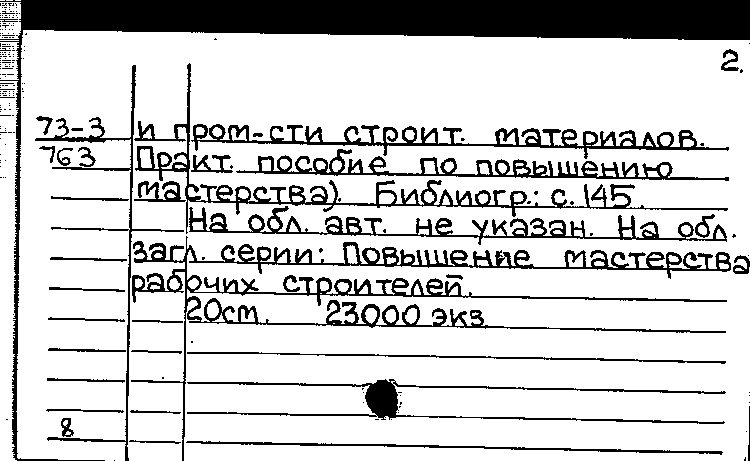 2.
73-3 и пром-сти строит. материалов.
763 Практ. пособие по повышению
мастерства). Библиогр.: с. 145.
На обл. авт. не указан. На обл.
загл. серии: Повышение мастерства
рабочих строителей.
20ст. 23000 экз
8